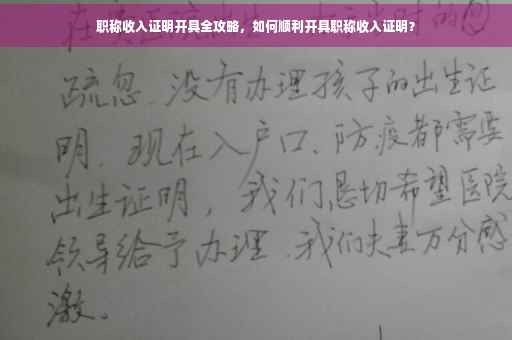 职称收入证明开具全攻略，如何顺利开具职称收入证明？
疏忽、没有办理孩子的出生证
明、现在入户口、防疫都需要
出生证明，我们恳切希望医院
领导给予办理、我们夫妻万分感
激。